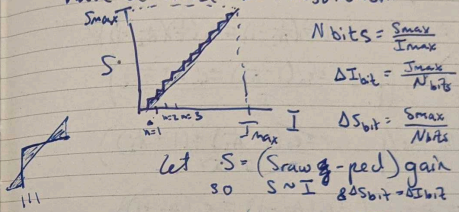 Smax
S
n=1 n=2 n=3
Imax I
N bits = Smax / Imax
ΔIbit = Imax / Nbits
ΔSbit = Smax / Nbits
let S = (Sraw - ped) gain
so S ~ I & ΔSbit = ΔIbit